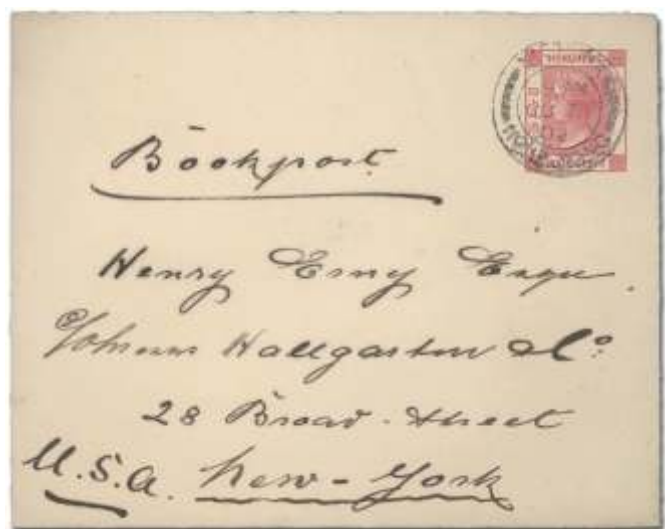 HONG KONG
Bookpost
Henry Esqre.
Hallgarten & Co.
28 Broad-Street
U.S.A. New-York